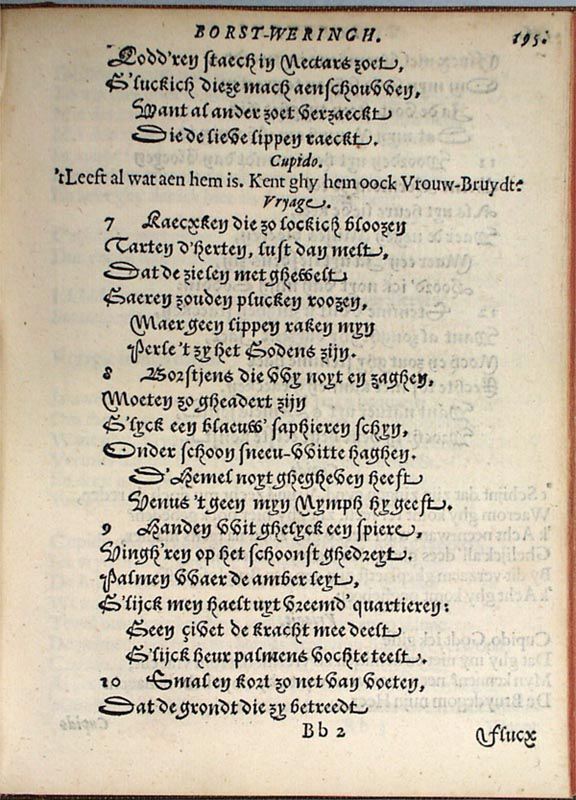 BORST-WERINGH. 195.
Lodd'ren staech in Nectars zoet,
G'luckich dieze mach aenschouvven,
Want al ander zoet verzaeckt
Die de lieve lippen raeckt.
Cupido.
'tLeeft al wat aen hem is. Kent ghy hem oock Vrouw-Bruydt?
Vryage.
7 Kaecxken die zo lockich bloozen
Tarten d'herten, lust dan melt,
Dat de zielen met ghewelt
Gaeren zouden plucken roozen,
Maer geen lippen raken myn
Perle 't zy het Godens zijn.
8 Borstjens die vvy noyt en zaghen,
Moeten zo gheadert zijn
G'lyck een blaeuw' saphieren schyn,
Onder schoon sneeu-vvitte haghen.
D'Hemel noyt ghegheven heeft
Venus 't geen myn Nymph hy geeft.
9 Handen vvit ghelyck een spiere,
Vingh'ren op het schoonst ghedreyt.
Palmen vvaer de amber leyt,
G'lijck men haelt uyt vreemd' quartieren:
Geen çivet de kracht mee deelt
G'lijck heur palmens vochte teelt.
10 Smal en kort zo net van voeten,
Dat de grondt die zy betreedt
Bb 2 flucx